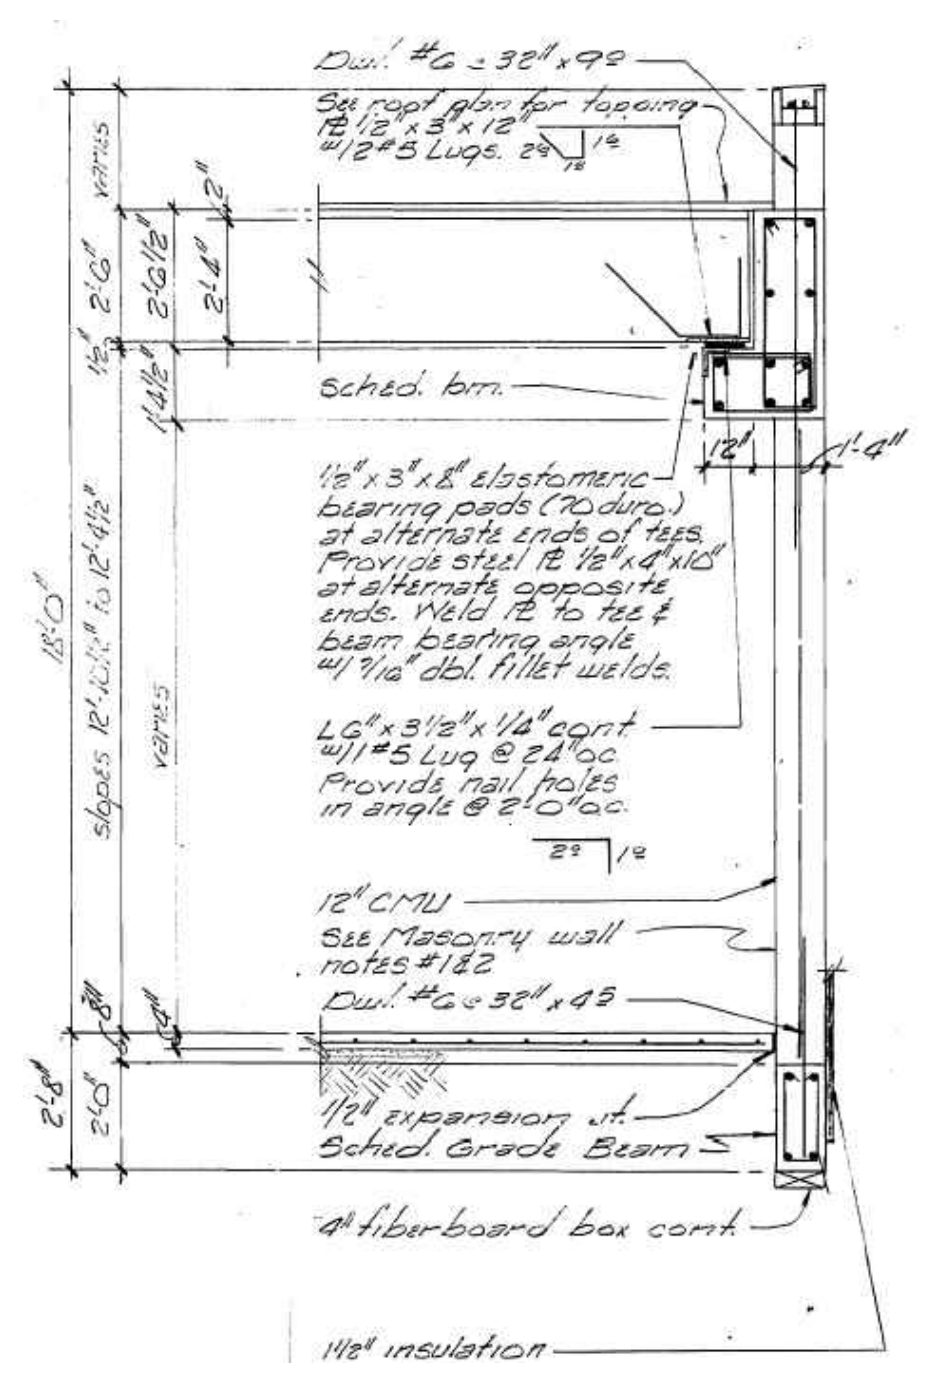 Dwl. #6 @ 32" x 9⁰
See roof plan for topping
PL 1/2" x 3" x 12"
w/2 #5 Lugs.
2⁰
1⁶
1⁸
varies
2"
2'-6"
2'-6 1/2"
2'-4"
1/2"
1'-4 1/2"
Sched. bm.
12"
1'-4"
1/2" x 3" x 8" Elastomeric
bearing pads (70 duro.)
at alternate ends of tees.
Provide steel PL 1/2" x 4" x 10"
at alternate opposite
ends. Weld PL to tee &
beam bearing angle
w/ 7/16" dbl. fillet welds.
18'-0"
slopes 12'-10 1/2" to 12'-4 1/2"
varies
L6" x 3 1/2" x 1/4" cont.
w/1 #5 Lug @ 24" oc
Provide nail holes
in angle @ 2'-0" o.c.
2⁹
1⁹
12" CMU
See Masonry wall
notes #1&2
Dwl. #6 @ 32" x 4⁵
8"
4"
2'-8"
2'-0"
1/2" expansion jt.
Sched. Grade Beam
4" fiberboard box cont.
1 1/2" insulation